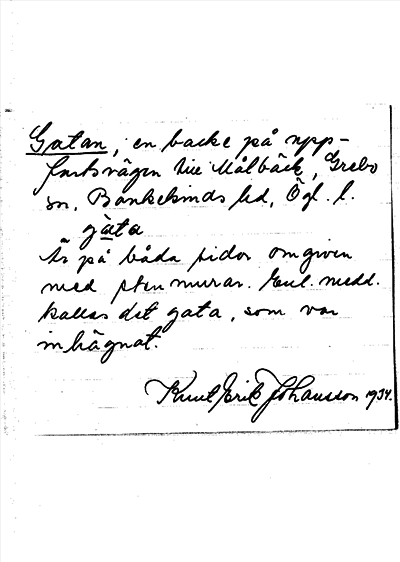 Gatan, en backe på upp-
fartsvägen till Målbäck, Grebo
sn, Bankekinds hd, Ögl. l.
gàta
Är på båda sidor omgiven
med stenmurar. Enl. medd.
kallas det gata, som var
inhägnat.
Knut Erik Johansson 1934.